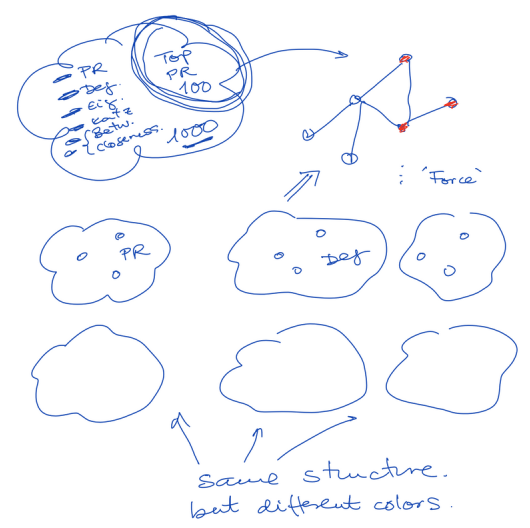 PR
Deg.
Eig.
Katz
Betw.
Closeness.
Top
PR
100
1000
: 'Force'
PR
Deg
Same structure.
but different colors.